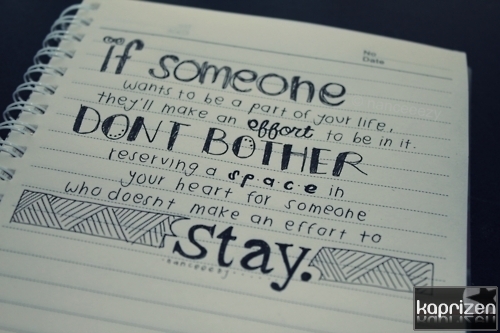 No
Date
if someone
wants to be a part of your life,
they'll make an effort to be in it.
DONT BOTHER
reserving a space in
your heart for someone
who doesnt make an effort to
stay.
kaprizen